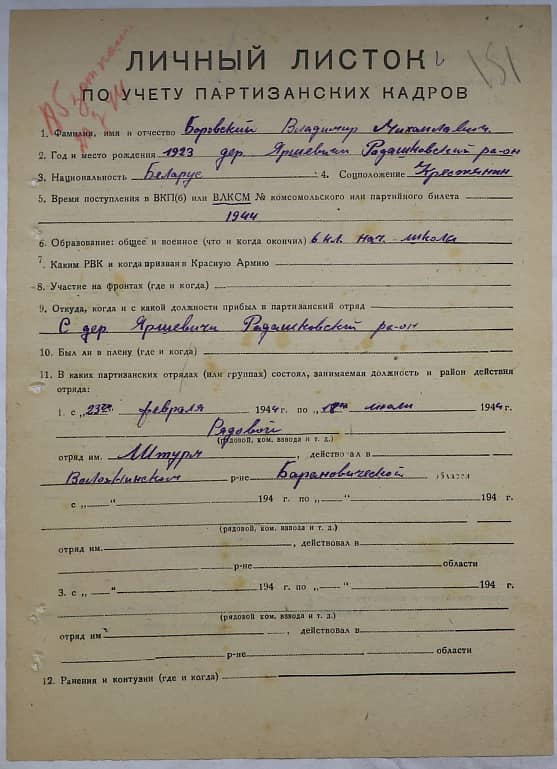 151
ЛИЧНЫЙ ЛИСТОК
ПО УЧЕТУ ПАРТИЗАНСКИХ КАДРОВ
1. Фамилия, имя и отчество Боровский Владимир Михайлавич.
2. Год и место рождения 1923 дер. Яршевичи Радашковский ра-он
3. Национальность Беларус 4. Соцположение Крестьянин
5. Время поступления в ВКП(б) или ВЛКСМ № комсомольского или партийного билета
1944
6. Образование: общее и военное (что и когда окончил) 6 кл. нач. школа
7. Каким РВК и когда призван в Красную Армию
8. Участие на фронтах (где и когда)
9. Откуда, когда и с какой должности прибыл в партизанский отряд
С дер. Яршевичи Радашковский ра-он
10. Был ли в плену (где и когда)
11. В каких партизанских отрядах (или группах) состоял, занимаемая должность и район действия
отряда:
1. с „23го" февраля 1944 г. по „ " июля 1944 г.
Рядовой
(рядовой, ком. взвода и т. д.)
отряд им. Штурм, действовал в
Воложинском р-не Барановической области
с „ — " 194 г. по „ — " 194 г.
(рядовой, ком. взвода и т. д.)
отряд им. , действовал в
р-не области
3. с „ — " 194 г. по „ — " 194 г.
(рядовой, ком. взвода и т. д.)
отряд им. , действовал в
р-не области
12. Ранения и контузии (где и когда)